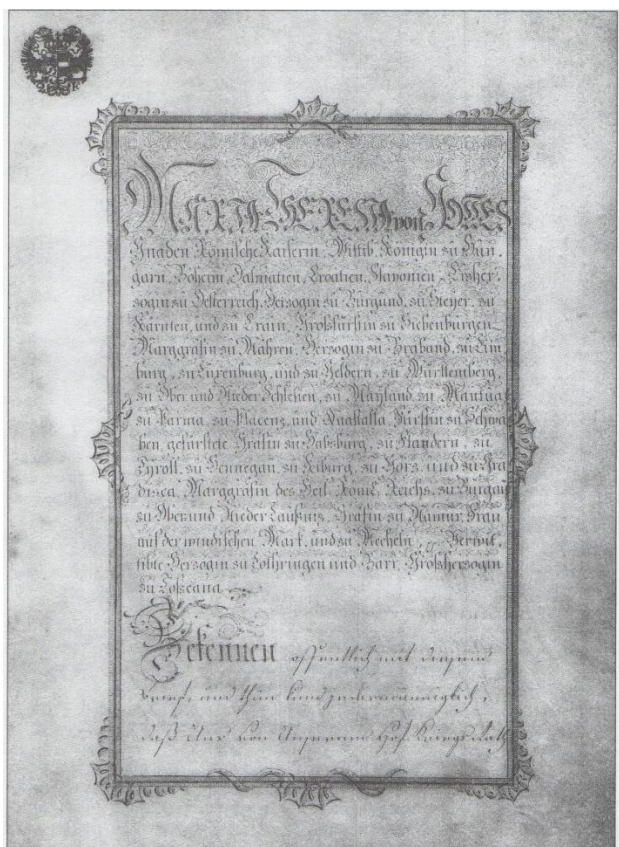 MARIA THERESIA von GOTTES
Gnaden Römische Kaiserin, Wittib, Königin zu Hun,
garn, Böheim, Dalmatien, Croatien, Slavonien, Erzher,
zogin zu Oesterreich, Herzogin zu Burgund, zu Steyer, zu
Kärnten, und zu Crain, Großfürstin zu Siebenbürgen
Marggräfin zu Mähren, Herzogin zu Braband, zu Lim,
burg, zu Luxenburg, und zu Geldern, zu Württemberg,
zu Ober und Nieder Schlesien, zu Mayland, zu Mantua
zu Parma, zu Placenz, und Quastalla, Fürstin zu Schwa
ben, gefürstete Gräfin zu Habsburg, zu Flandern, zu
Tyroll, zu Hennegau, zu Kiburg, zu Görz, und zu Gra
disca, Marggräfin des Heil. Röml. Reichs, zu Burgau
zu Ober und Nieder Laußniz, Gräfin zu Namur, Frau
auf der windischen Mark, und zu Mecheln, Verwit,
tibte Herzogin zu Lothringen und Barr, Großherzogin
zu Toscana
Bekennen öffentlich mit diesem
Brief, und thun kund jedermänniglich,
daß Uns von Unserem Hof Kriegs Rath